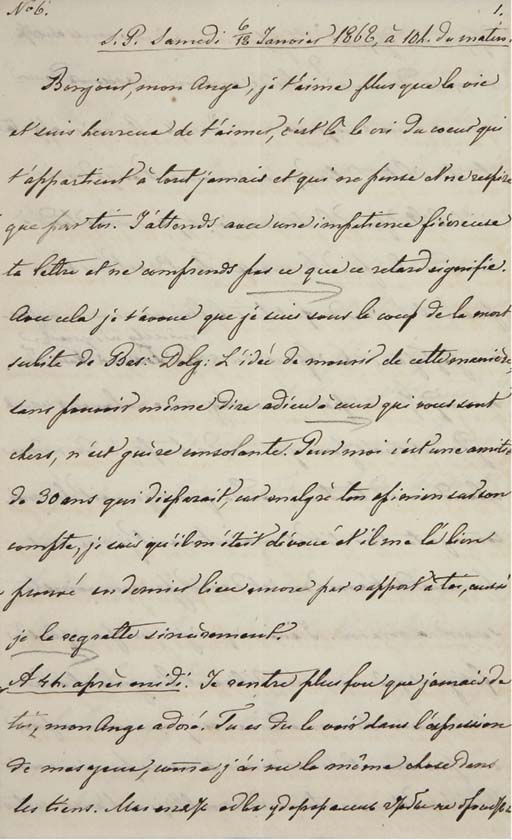 No 6. 1.
S. P. Samedi 6/18 Janvier 1868, à 10 h. du matin.
Bonjour, mon Ange, je t'aime plus que la vie
et suis heureux de t'aimer, c'est là le cri du coeur qui
t'appartient à tout jamais et qui ne pense et ne respire
que par toi. J'attends avec une impatience fiévreuse
ta lettre et ne comprends pas ce que ce retard signifie.
Avec cela je t'avoue que je suis sous le coup de la mort
subite de Bas: Dolg: L'idée de mourir de cette manière,
sans pouvoir même dire adieu à ceux qui vous sont
chers, n'est guère consolante. Pour moi c'est une amitié
de 30 ans qui disparait, car malgré ton opinion sur son
compte, je sais qu'il m'était dévoué et il me l'a bien
prouvé en dernier lieu encore par rapport à toi, aussi
je le regrette sincèrement.
A 4 h. après midi. Je rentre plus fou que jamais de
toi, mon Ange adoré. Tu as du le voir dans l'expression
de mes yeux, comme j'ai vu la même chose dans
les tiens. Mais